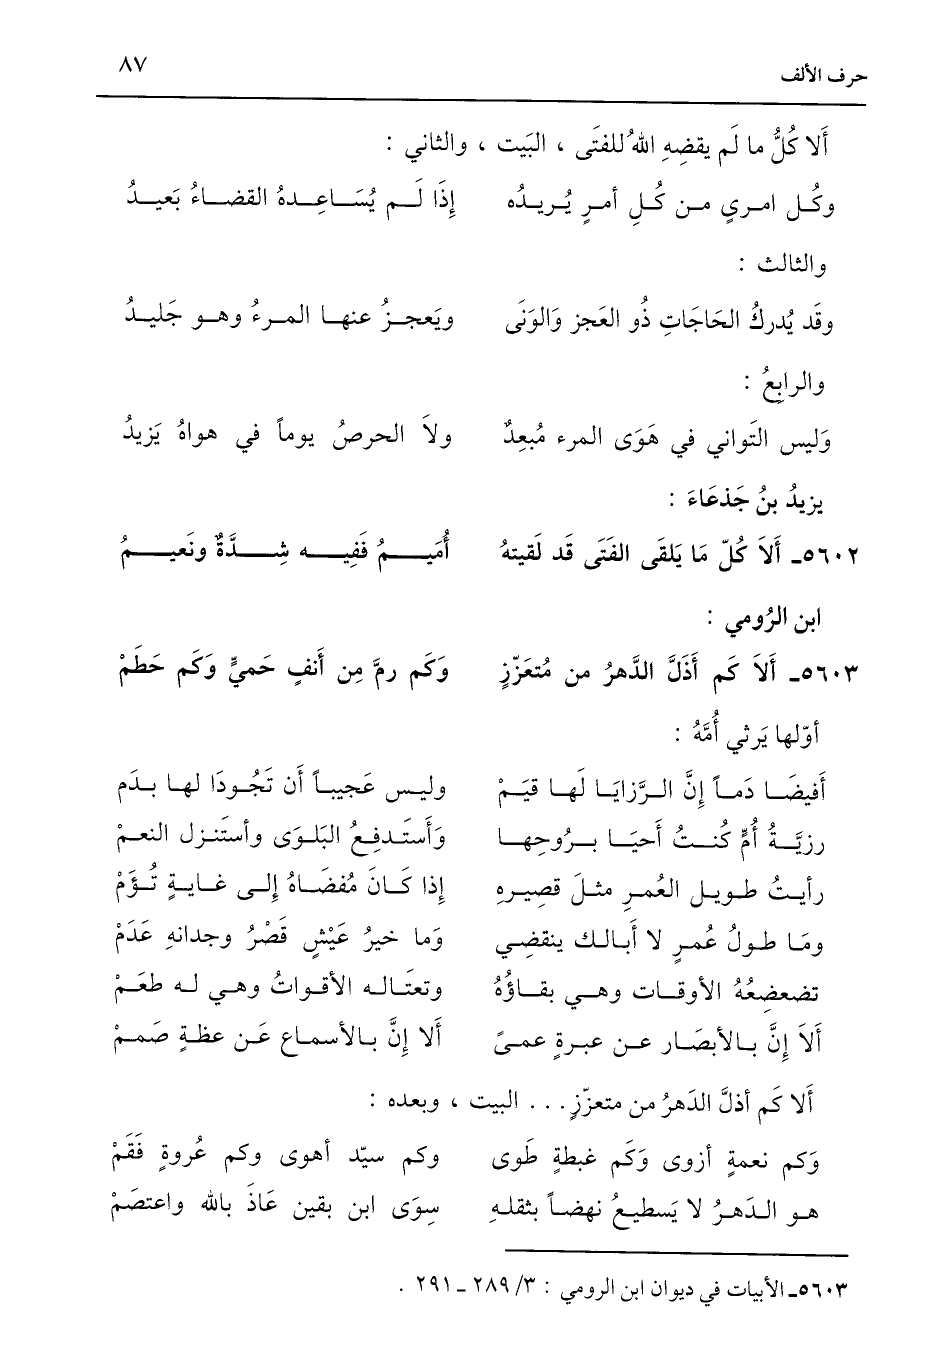 حرف الألف ٨٧
أَلا كُلُّ ما لَم يقضِهِ اللهُ للفتَى ، البَيت ، والثاني :
وكُـل امـرىٍ مـن كُـلِ أمـرٍ يُـريـدُه إذَا لَـم يُسَـاعِـدهُ القضـاءُ بَعيـدُ
والثالث :
وقَد يُدركُ الحَاجَاتِ ذُو العَجزِ وَالوَنَى ويَعجـزُ عنهـا المـرءُ وهـو جَليـدُ
والرابعُ :
وَليس التَواني في هَوَى المرء مُبعِدٌ ولاَ الحرصُ يوماً في هواهُ يَزيدُ
يزيدُ بنُ جَذعَاءَ :
٥٦٠٢ـ أَلاَ كُلّ مَا يَلقَى الفَتَى قَد لَقيتهُ أُمَيـمُ فَفيـه شِـدَّةٌ ونَعيـمُ
ابن الرُومي :
٥٦٠٣ـ أَلاَ كَم أَذَلَّ الدَّهرُ من مُتعَزّزٍ وَكَم رمَّ مِن أَنفٍ حَميٍّ وَكَم حَطَمْ
أوّلها يَرثي أُمَّهُ :
أَفيضَـا دَمـاً إنَّ الـرَّزايَـا لَهـا قيَـمْ وليـس عَجيبـاً أَن تَجُـودَا لهـا بـدَم
رزيَّـةُ أُمٍّ كُنـتُ أَحيَـا بـرُوحِهـا وَأَستَـدفِـعُ البَلـوَى وأَستَنـزل النعـمْ
رأيـتُ طـويـل العُمـرِ مثـلَ قصِيـرهِ إذا كَـانَ مُفضَـاهُ إلـى غـايـةٍ تُـؤَمْ
ومَا طـولُ عُمـرٍ لا أَبـالـك ينقضِـي وَمَا خيرُ عَيْشٍ قَصْرُ وجدانهِ عَدَمْ
تضعضِعُهُ الأوقـات وهـي بقـاؤُهُ وتعتَـالـه الأقـواتُ وهـي لـه طعَـمْ
أَلاَ إنَّ بـالأبصَـار عـن عبـرةٍ عمـىً أَلا إنَّ بـالأسمـاع عَـن عظـةٍ صَمـمْ
أَلا كَم أذلَّ الدَهرُ من متعزّزٍ . . . البيت ، وبعده :
وَكَم نعمةٍ أزوى وَكَم غبطةٍ طَوى وكم سيّد أهوى وكم عُروةٍ فَقَمْ
هـو الـدَهـرُ لا يَسطيـعُ نهضـاً بثقلـهِ سِوَى ابن بقين عَاذَ بالله واعتصَمْ
٥٦٠٣ـ الأبيات في ديوان ابن الرومي : ٣/ ٢٨٩ ـ ٢٩١ .